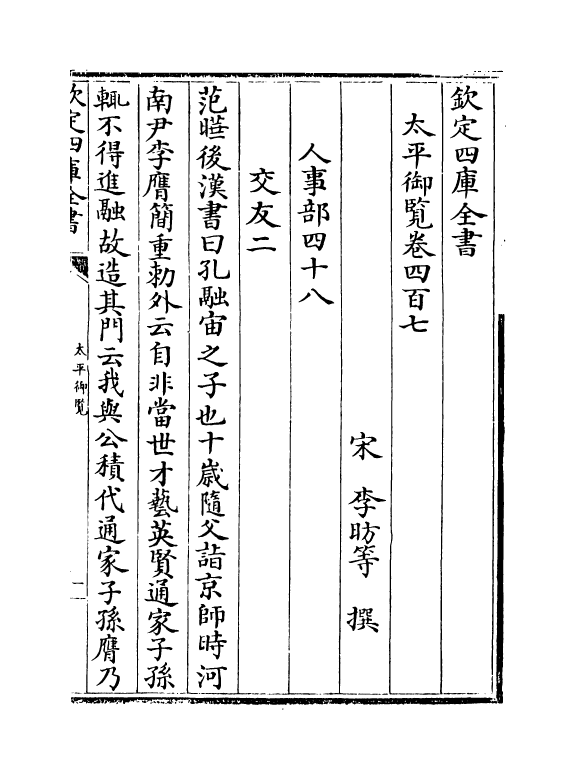 欽定四庫全書
太平御覧卷四百七
宋 李昉等 撰
人事部四十八
交友二
范曄後漢書曰孔融宙之子也十歲隨父詣京師時河
南尹李膺簡重勅外云自非當世才藝英賢通家子孫
輒不得進融故造其門云我與公積代通家子孫膺乃
欽定四庫全書
太平御覧
一